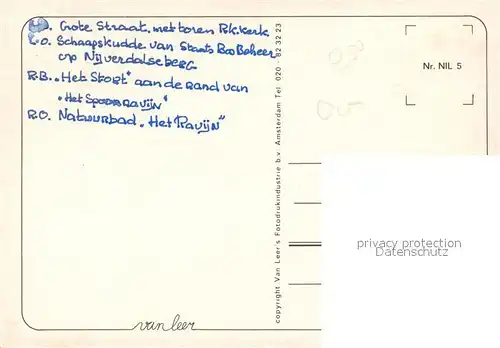 L.B. Grote Straat, met toren R.k. kerk
L.O. Schaapskudde van Staats Bos Beheer
op Nijverdalseberg
R.B. „Het Stort" aan de rand van
„Het Spoorravijn"
R.O. Natuurbad „Het Ravijn"
Nr. NIL 5
copyright Van Leer's Fotodrukindustrie b.v. Amsterdam Tel. 020 - 82 32 23
privacy protection
Datenschutz
van leer